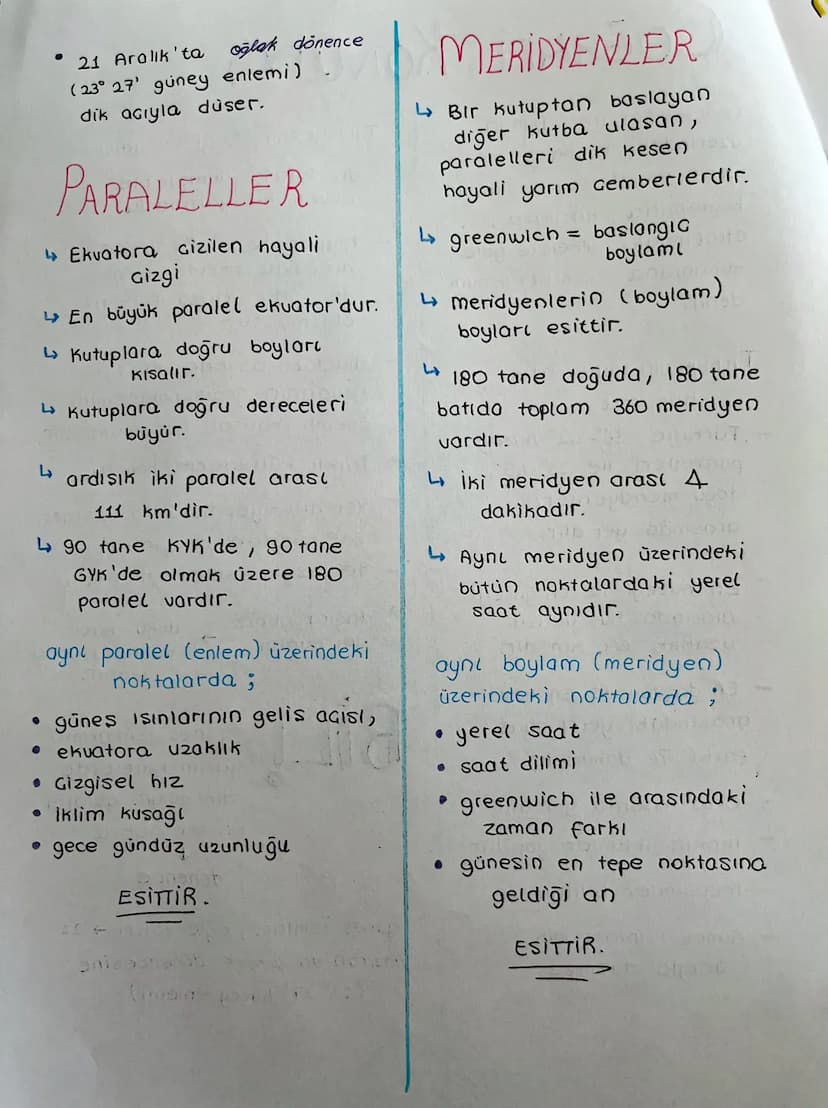 • 21 Aralık'ta oğlak dönence
(23° 27' güney enlemi)
dik acıyla düser.
PARALELLER
↳ Ekvatora cizilen hayali
cizgi
↳ En büyük paralel ekvator'dur.
↳ Kutuplara doğru boyları
kısalır.
↳ Kutuplara doğru dereceleri
büyür.
↳ ardısık iki paralel arası
111 km'dir.
↳ 90 tane KYK'de, 90 tane
GYK'de olmak üzere 180
paralel vardır.
aynı paralel (enlem) üzerindeki
noktalarda ;
• günes ısınlarının gelis acısı,
• ekvatora uzaklık
• cizgisel hız
• iklim kusağı
• gece gündüz uzunluğu
ESİTTİR.
MERİDYENLER
↳ Bır kutuptan baslayan
diğer kutba ulasan,
paralelleri dik kesen
hayali yarım cemberlerdir.
↳ greenwich = baslangıc
boylamı
↳ meridyenlerin (boylam)
boyları esittir.
↳ 180 tane doğuda, 180 tane
batıda toplam 360 meridyen
vardır.
↳ İki meridyen arası 4
dakikadır.
↳ Aynı meridyen üzerindeki
bütün noktalardaki yerel
saat aynıdır.
aynı boylam (meridyen)
üzerindeki noktalarda ;
• yerel saat
• saat dilimi
• greenwich ile arasındaki
zaman farkı
• günesin en tepe noktasına
geldiği an
ESİTTİR.